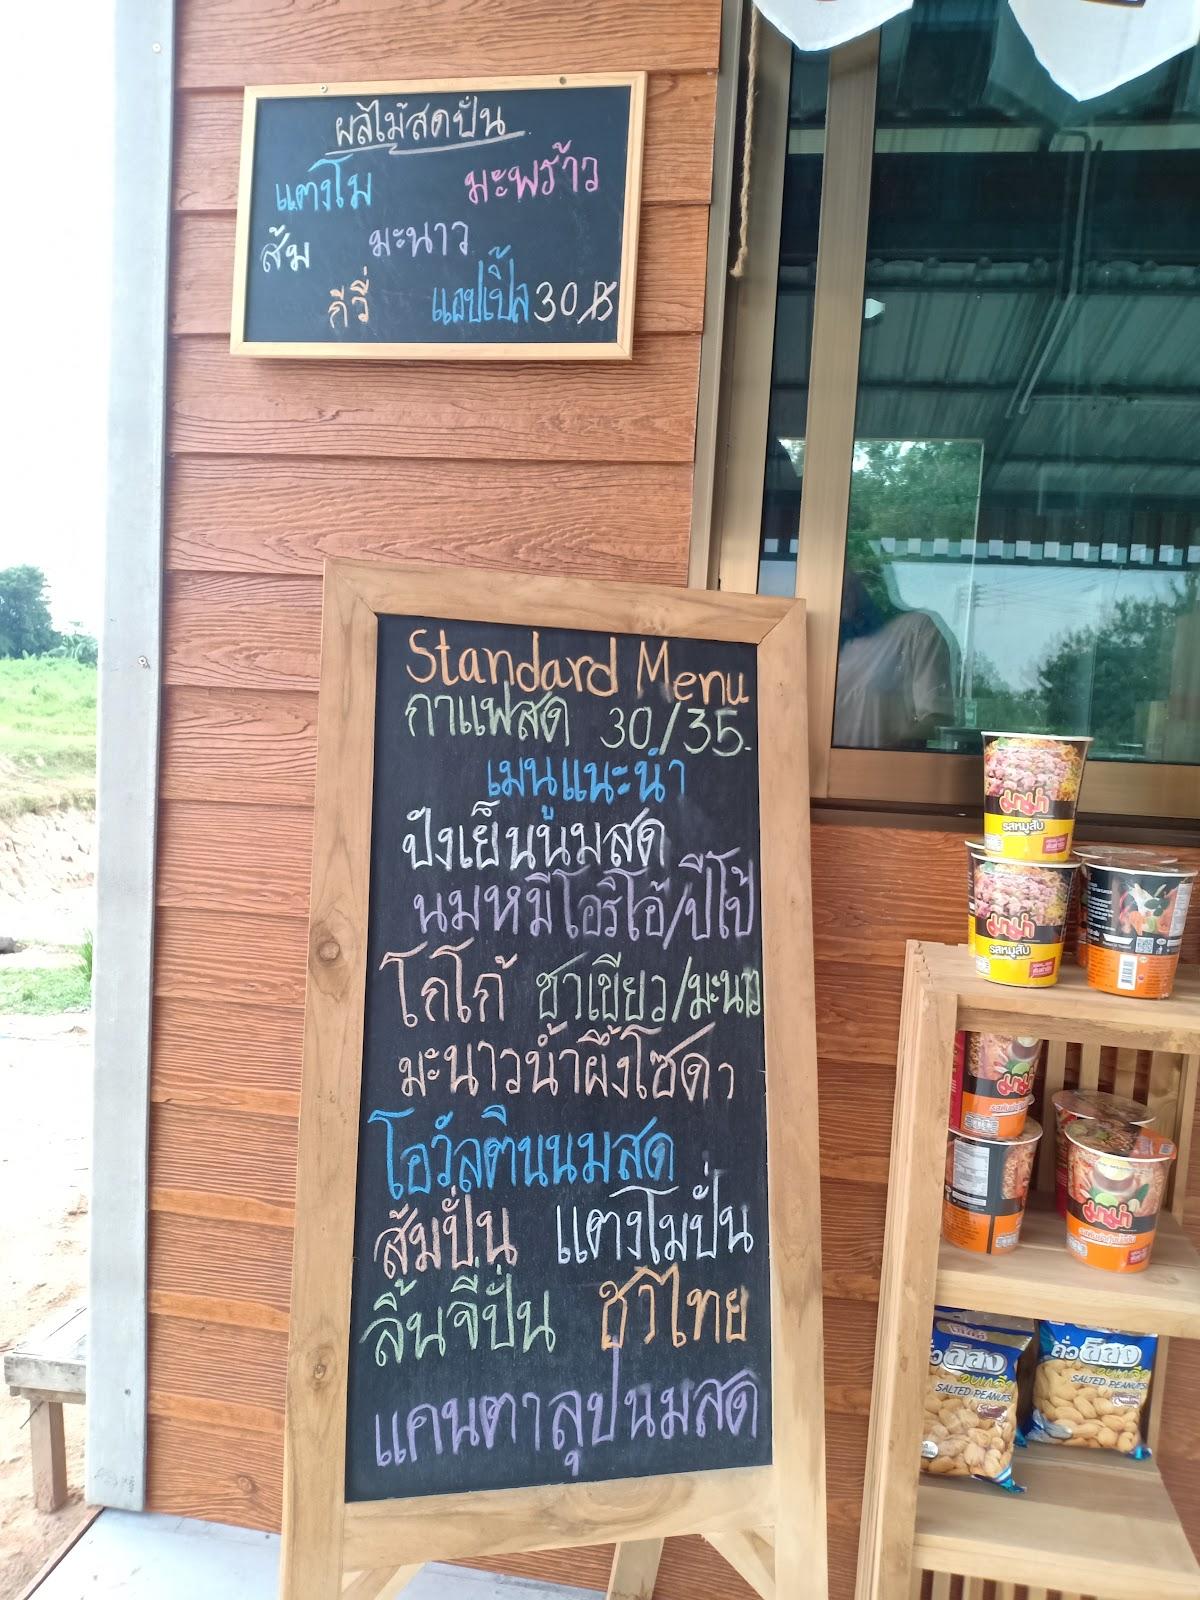 ผลไม้สดปั่น
แตงโม มะพร้าว
ส้ม มะนาว
กีวี่ แอปเปิ้ล 30฿
Standard Menu
กาแฟสด 30/35.
เมนูแนะนำ
ปังเย็นนมสด
นมหมีโอริโอ้/ปีโป้
โกโก้ ชาเขียว/มะนาว
มะนาวน้ำผึ้งโซดา
โอวัลตินนมสด
ส้มปั่น แตงโมปั่น
ลิ้นจี่ปั่น ชาไทย
แคนตาลูปนมสด
มาม่า
รสหมูสับ
มาม่า
รสหมูสับ
มาม่า
มาม่า
ถั่วลิสง
อบเกลือ
SALTED PEANUTS
ถั่วลิสง
อบเกลือ
SALTED PEANUTS